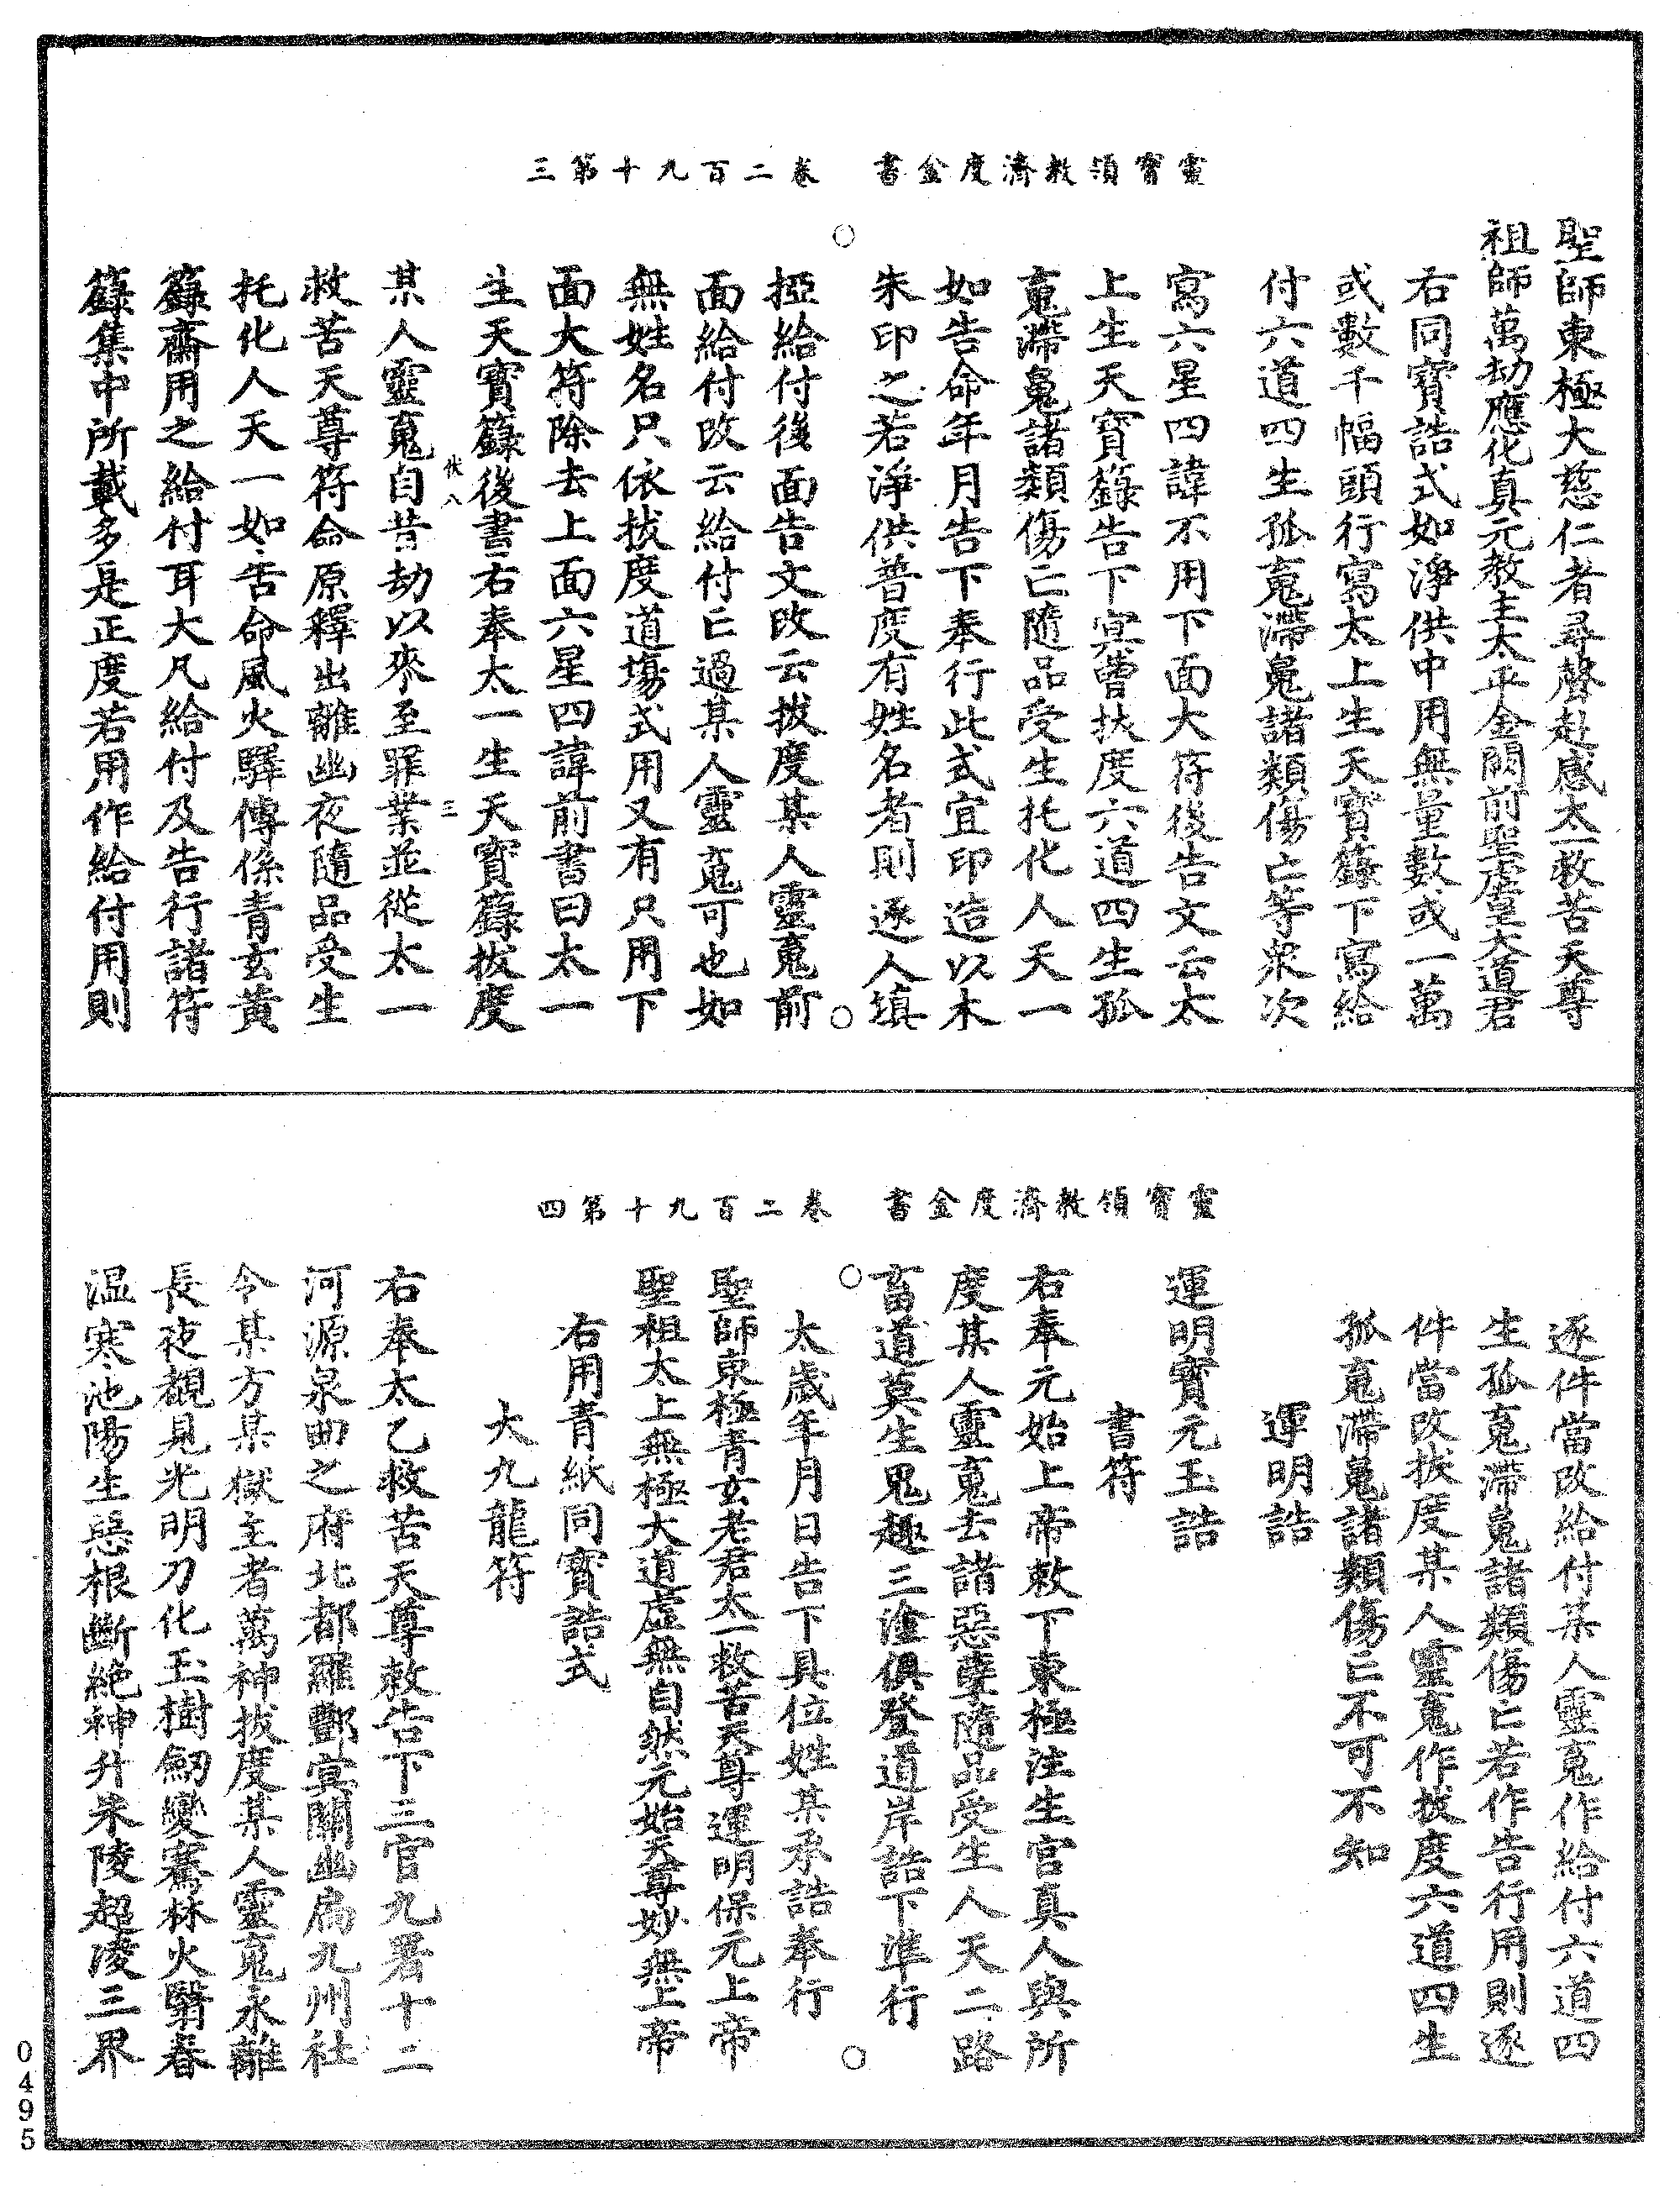 靈寶領教濟度金書 卷二百九十第三
聖師東極大慈仁者尋聲赴感太一救苦天尊
祖師萬劫應化真元教主太平金闕前聖虛皇大道君
右同寶誥式如淨供中用無量數或一萬
或數千幅頭行寫太上生天寶籙下寫給
付六道四生孤䰟滯魄諸類傷亡等衆次
寫六星四諱不用下面大符後告文云太
上生天寶籙告下冥曹扶度六道四生孤
䰟滯魄諸類傷亡隨品受生托化人天一
如告命年月告下奉行此式宜印造以木
朱印之若淨供普度有姓名者則逐人填
掗給付後面告文改云拔度某人靈䰟前
面給付改云給付亡過某人靈䰟可也如
無姓名只依拔度道場式用又有只用下
面大符除去上面六星四諱前書曰太一
生天寶籙後書右奉太一生天寶籙拔度
伏八 三
某人靈䰟自昔劫以來至罪業並從太一
救苦天尊符命原釋出離幽夜隨品受生
托化人天一如告命風火驛傳係青玄黃
籙齋用之給付耳大凡給付及告行諸符
籙集中所載多是正度若用作給付用則
靈寶領教濟度金書 卷二百九十第四
逐件當改給付某人靈䰟作給付六道四
生孤䰟滯魄諸類傷亡若作告行用則逐
件當改拔度某人靈䰟作拔度六道四生
孤䰟滯魄諸類傷亡不可不知
運明誥
運明寶元玉誥
書符
右奉元始上帝敕下東極注生官真人與所
度某人靈䰟去諸惡孽隨品受生人天二路
畜道莫生鬼趣三塗俱登道岸誥下準行
太歲年月日告下具位姓某承誥奉行
聖師東極青玄老君太一救苦天尊運明保元上帝
聖祖太上無極大道虛無自然元始天尊妙無上帝
右用青紙同寶誥式
大九龍符
右奉太乙救苦天尊敕告下三官九署十二
河源泉曲之府北都羅酆冥關幽扃九州社
令某方某獄主者萬神拔度某人靈䰟永離
長夜覩見光明刀化玉樹劒變騫林火翳春
温寒池陽生惡根斷絕神升朱陵超淩三界
0495